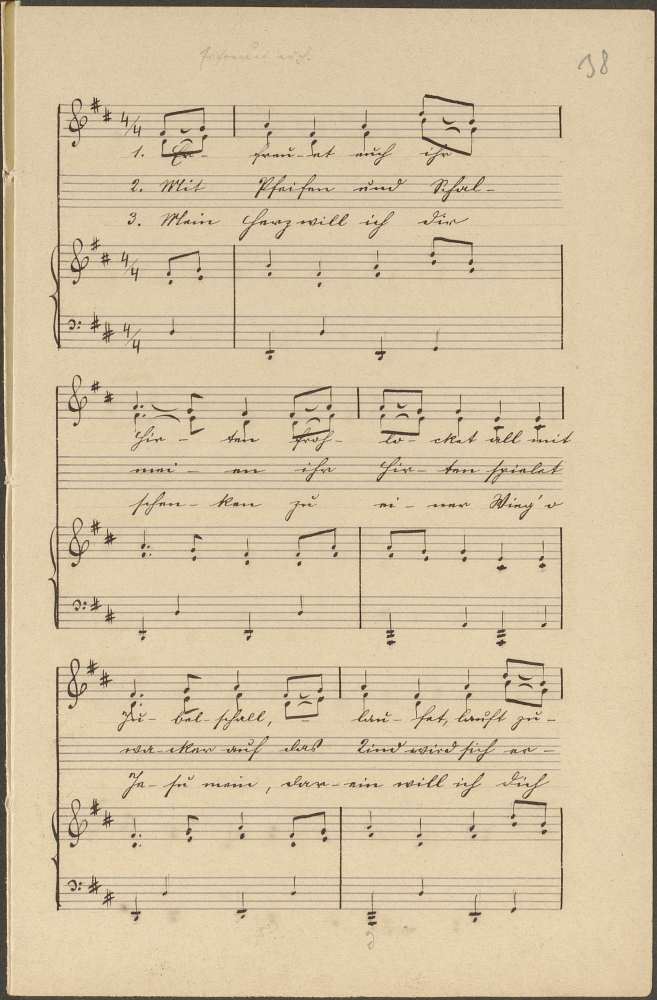 Erfreuet euch.
38
4/4
1. Er- freu-et euch ihr
2. Mit Pfeifen und Schal-
3. Mein Herz will ich dir
4/4
4/4
Hir- ten froh- lo- cket all mit
mei- en ihr Hir-ten spielet
schen-ken zu ei-ner Wieg' o
Ju- bel-schall, lau- fet, lauft zu-
wa-cker auf das Kind wird sich er-
Je-su mein, dar-ein will ich dich